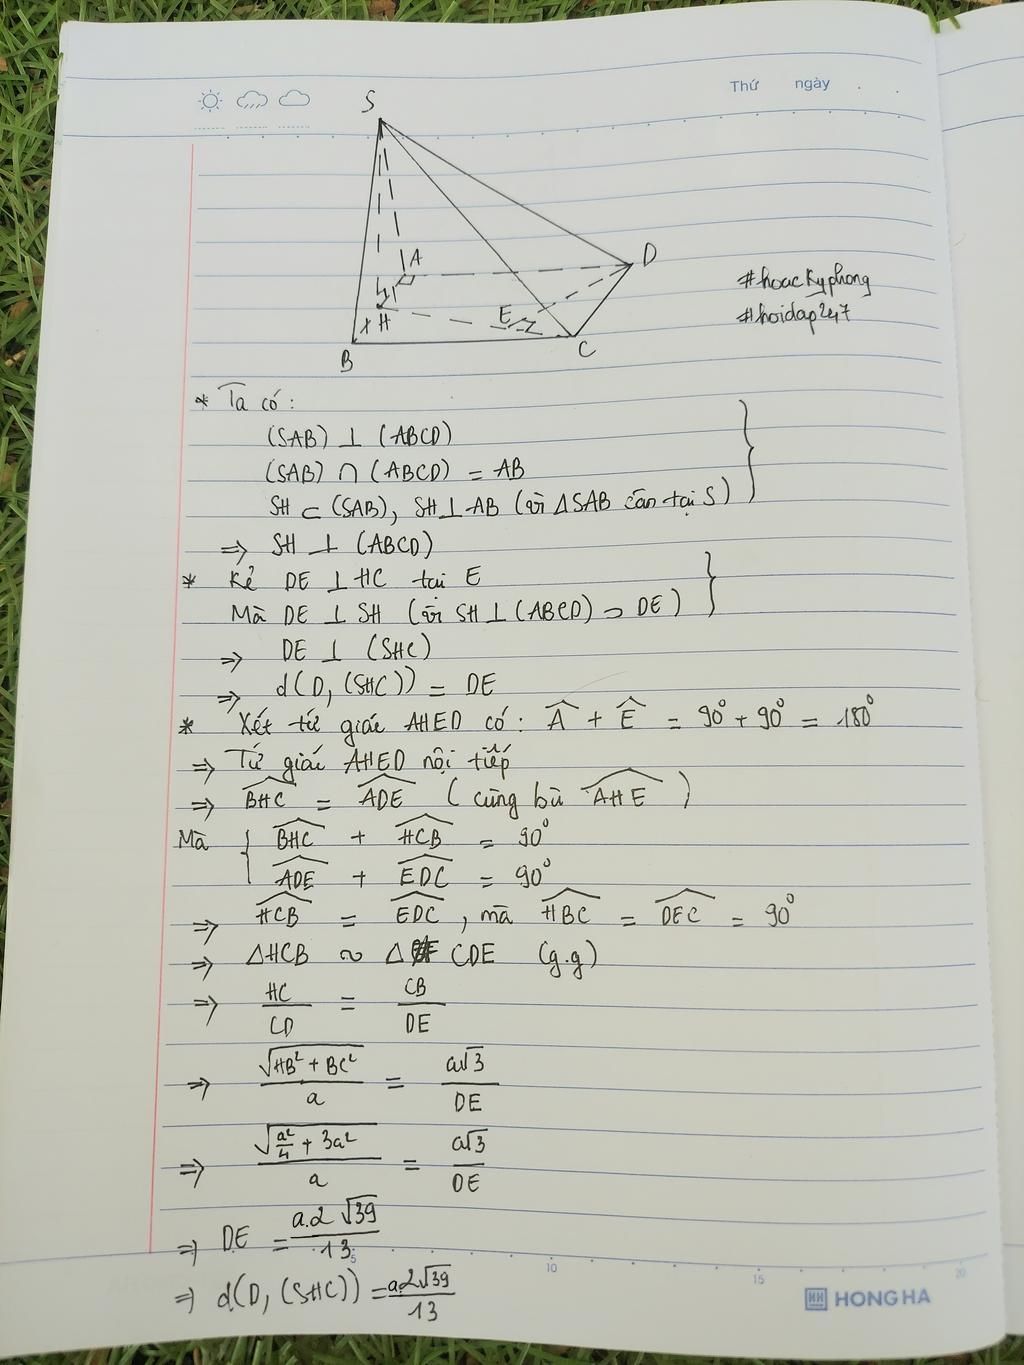 Thứ ngày
S
A
D
H
E
B
C
#hoackyphong
#hoidap247
* Ta có:
(SAB) ⊥ (ABCD)
(SAB) ∩ (ABCD) = AB
SH ⊂ (SAB), SH ⊥ AB (vì ΔSAB cân tại S)
⇒ SH ⊥ (ABCD)
* Kẻ DE ⊥ HC tại E
Mà DE ⊥ SH (vì SH ⊥ (ABCD) ⊃ DE)
⇒ DE ⊥ (SHC)
⇒ d(D, (SHC)) = DE
* Xét tứ giác AHED có: Â + Ê = 90° + 90° = 180°
⇒ Tứ giác AHED nội tiếp
⇒ BHC = ADE (cùng bù AHE)
Mà { BHC + HCB = 90°
ADE + EDC = 90°
⇒ HCB = EDC, mà HBC = DEC = 90°
⇒ ΔHCB ~ Δ CDE (g.g)
⇒ HC/CD = CB/DE
⇒ √(HB² + BC²)/a = a√3/DE
⇒ √(a²/4 + 3a²)/a = a√3/DE
⇒ DE = a.2√39/13
⇒ d(D, (SHC)) = a.2√39/13
5 10 15 20
HONG HA